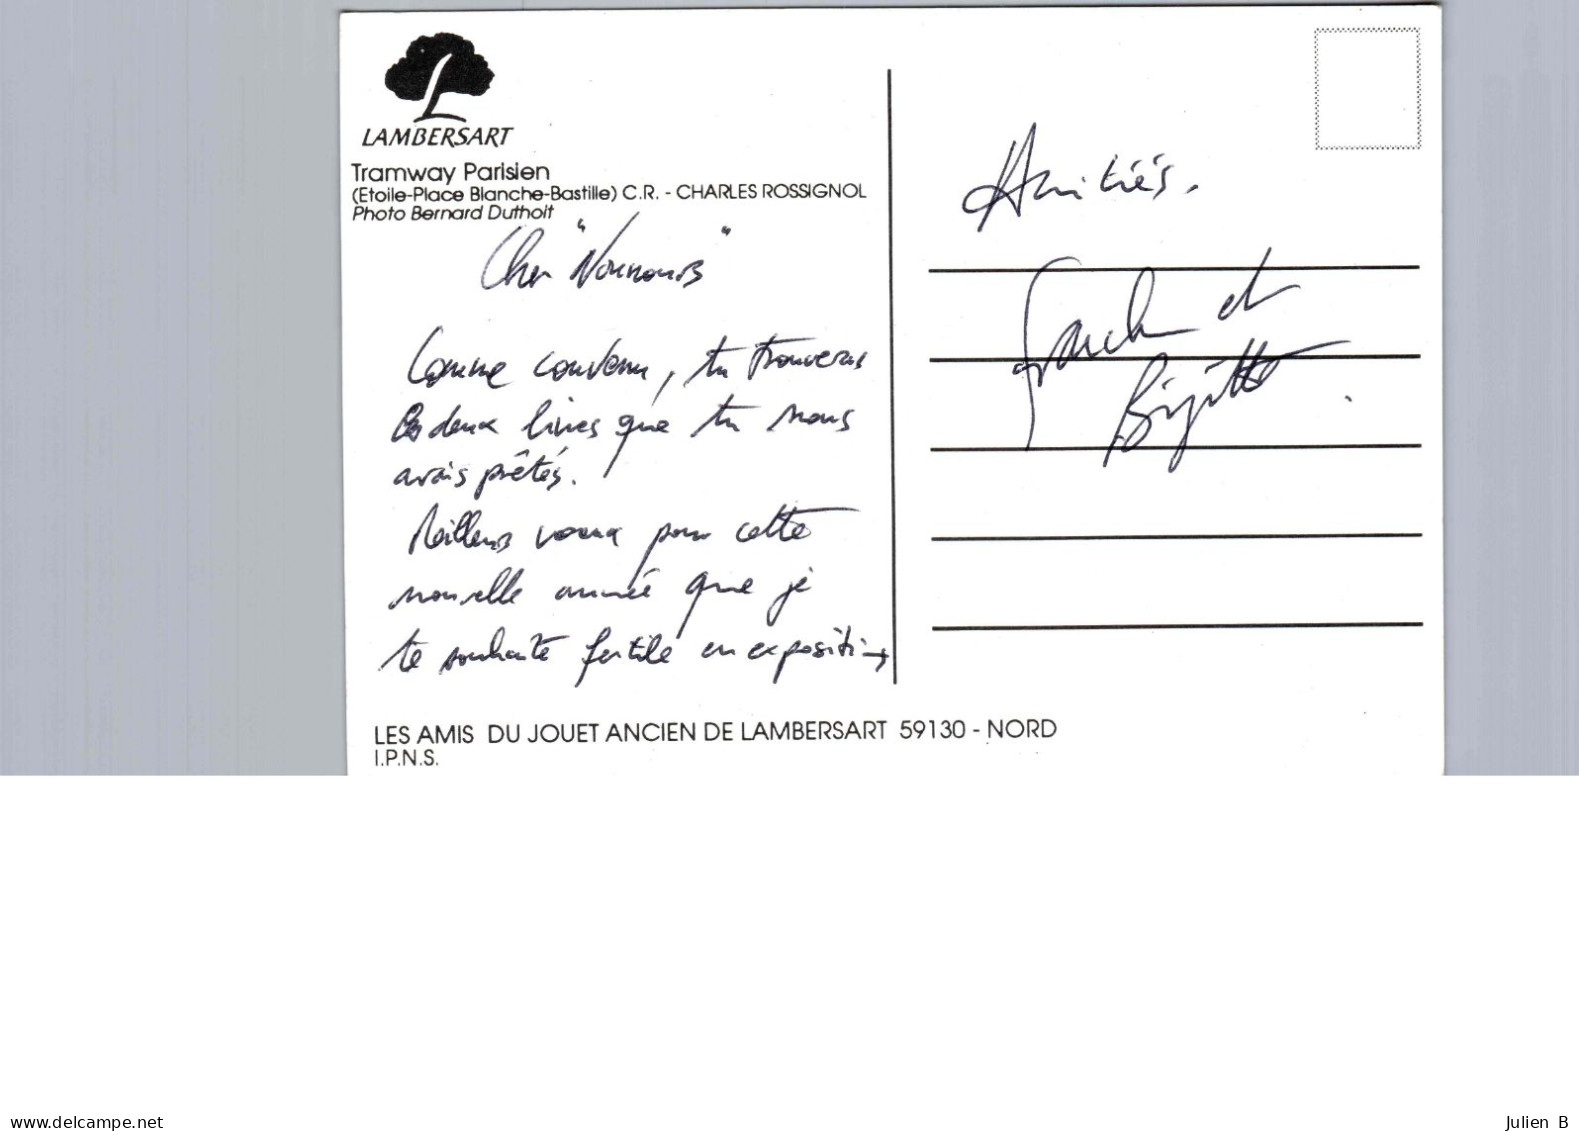 LAMBERSART
Tramway Parisien
(Etoile-Place Blanche-Bastille) C.R. - CHARLES ROSSIGNOL
Photo Bernard Dutholt
Cher "Nounours"
Comme convenu, tu trouveras
les deux livres que tu nous
avais prêtés.
Meilleurs voeux pour cette
nouvelle année que je
te souhaite fertile en exposition
Amitiés.
et
Brigitte.
LES AMIS DU JOUET ANCIEN DE LAMBERSART 59130 - NORD
I.P.N.S.
www.delcampe.net
Julien B